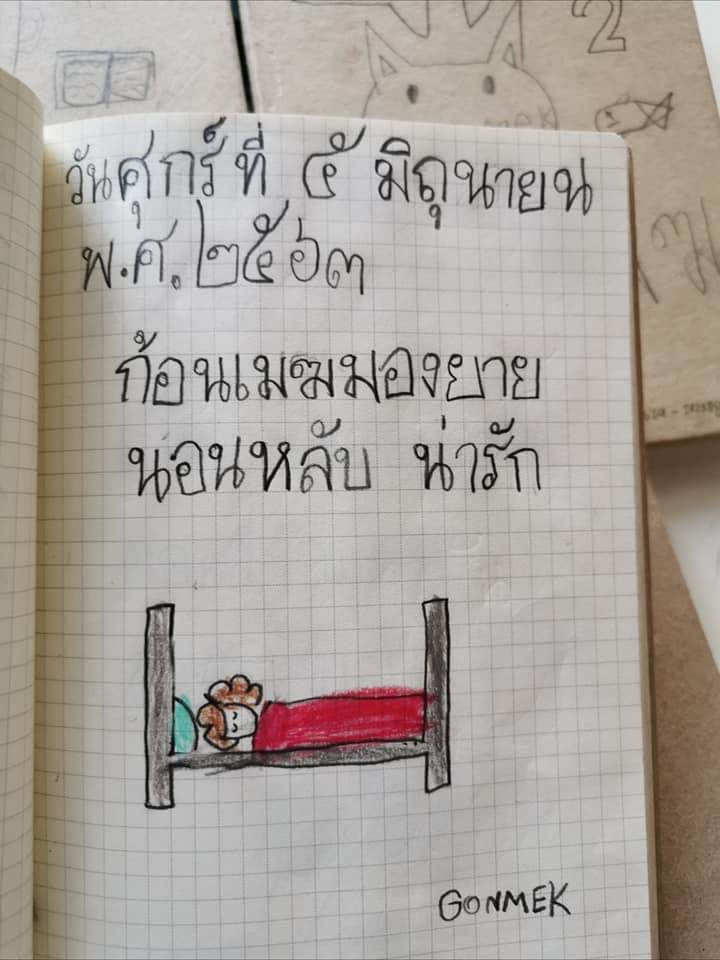 2
วันศุกร์ที่ ๕ มิถุนายน
พ.ศ. ๒๕๖๓
ก้อนเมฆมองยาย
นอนหลับ น่ารัก
GONMEK